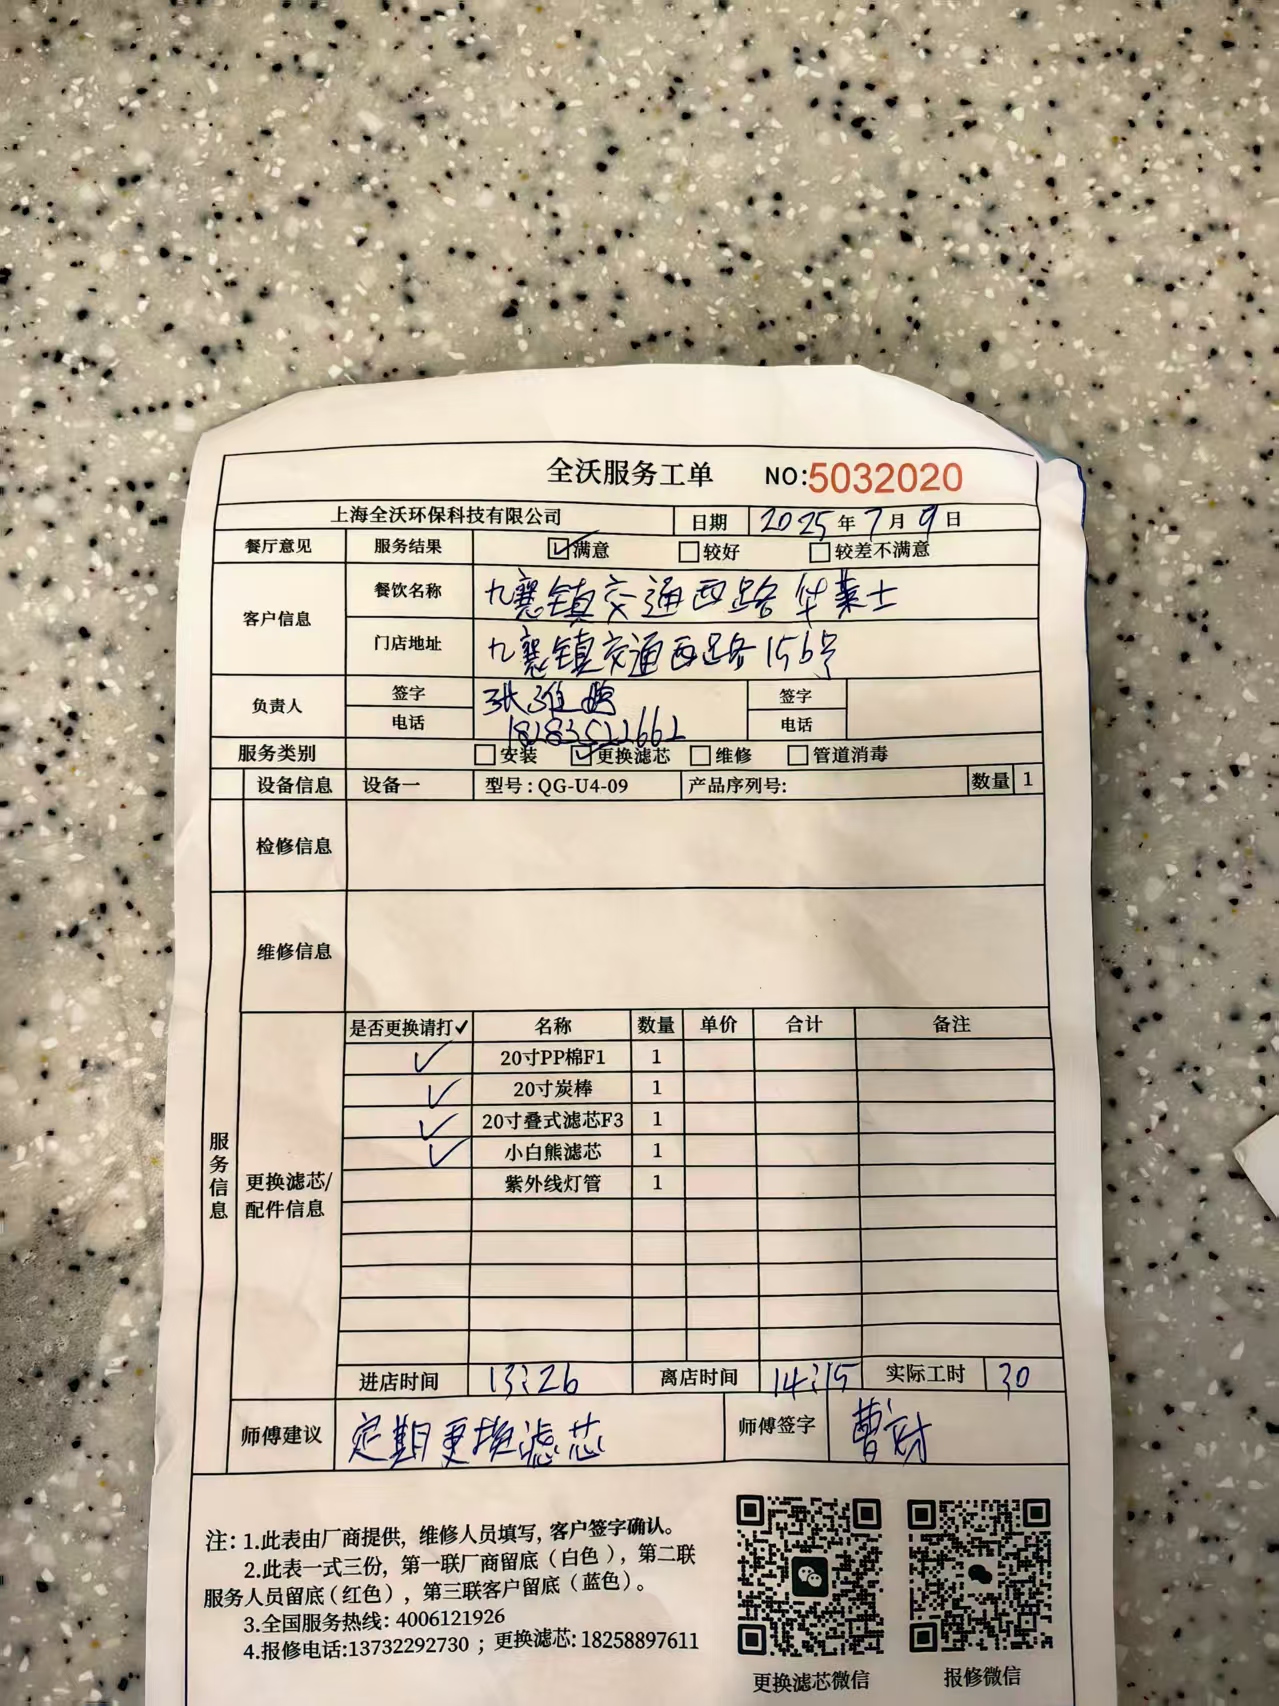 全沃服务工单 NO:5032020
上海全沃环保科技有限公司 日期 2025年7月9日
餐厅意见 服务结果 ☑满意 □较好 □较差不满意
客户信息 餐饮名称 九襄镇交通西路华莱士
门店地址 九襄镇交通西路156号
负责人 签字 张 签字
电话 电话
服务类别 □安装 ☑更换滤芯 □维修 □管道消毒
设备信息 设备一 型号:QG-U4-09 产品序列号: 数量 1
检修信息
维修信息
服务信息
更换滤芯/配件信息
是否更换请打✓ 名称 数量 单价 合计 备注
✓ 20寸PP棉F1 1
✓ 20寸炭棒 1
✓ 20寸叠式滤芯F3 1
✓ 小白熊滤芯 1
紫外线灯管 1
进店时间 13:26 离店时间 14:15 实际工时 30
师傅建议 定期更换滤芯 师傅签字 曹财
注: 1.此表由厂商提供, 维修人员填写, 客户签字确认。
2.此表一式三份, 第一联厂商留底(白色), 第二联
服务人员留底(红色), 第三联客户留底(蓝色)。
3.全国服务热线: 4006121926
4.报修电话:13732292730 ; 更换滤芯: 18258897611
更换滤芯微信 报修微信